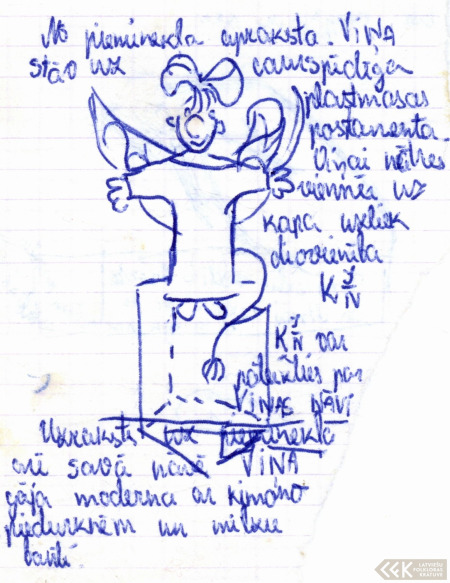 No pieminekļa apraksta. VIŅA
stāv uz caurspīdīga
plastmasas
postamenta.
Viņai
vienmēr uz
kapa uzliek
divvienība
K J/N
K J/N var
pateikties par
VIŅAS NĀVI
Uzraksts uz pieminekļa
arī savā nāvē VIŅA
gāja moderna ar kimono
piedurknēm un
banti.
LATVIEŠU
FOLKLORAS
KRĀTUVE